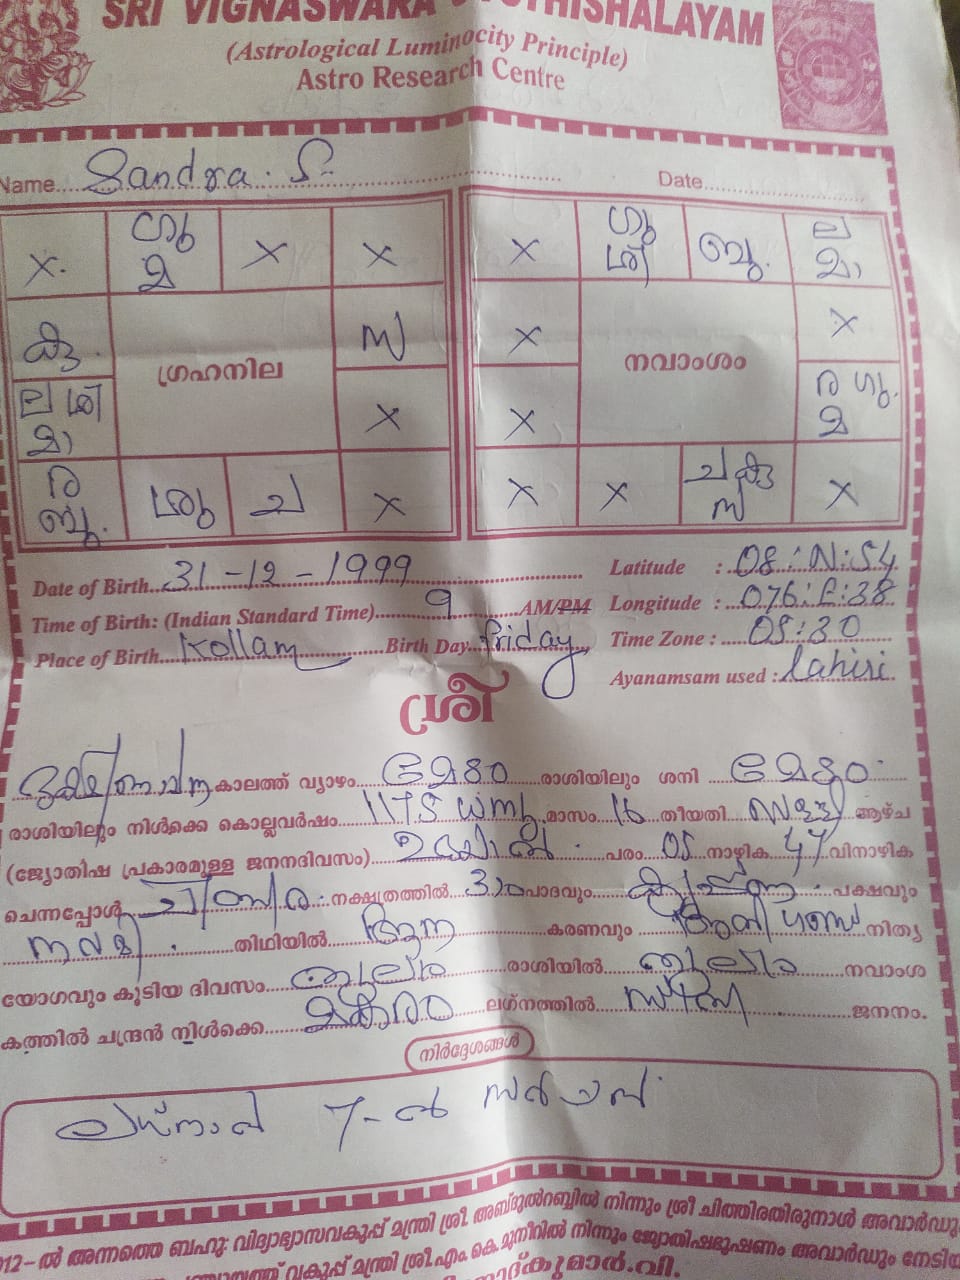 SRI VIGNASWARA
(Astrological Luminocity Principle)
Astro Research Centre
Name Sandra. S Date
x. ഗു മ x x
കു. ഗ്രഹനില സ
ല ശി മാ x
ര ബു. ശു ച x
x ഗു ശി ബു. ല മാ
x നവാംശം x
x ര ഗു. മ
x x ച കു സ x
Date of Birth 31-12-1999
Time of Birth: (Indian Standard Time) 9 AM/PM
Place of Birth Kollam Birth Day friday
Latitude : 08:N:54
Longitude : 076:E:38
Time Zone : 05:30
Ayanamsam used : lahiri
ശ്രീ
കാലത്ത് വ്യാഴം മേടം രാശിയിലും ശനി മേടം
രാശിയിലും നിൽക്കെ കൊല്ലവർഷം 1175 ധനു മാസം 16 തീയതി ആഴ്ച
(ജ്യോതിഷ പ്രകാരമുള്ള ജനനദിവസം) ഉദയാൽ പരം 05 നാഴിക 47 വിനാഴിക
ചെന്നപ്പോൾ നക്ഷത്രത്തിൽ 3ാം പാദവും പക്ഷവും
നവമി തിഥിയിൽ ആന കരണവും നിത്യ
യോഗവും കൂടിയ ദിവസം തുലാം രാശിയിൽ തുലാം നവാംശ
കത്തിൽ ചന്ദ്രൻ നിൽക്കെ മകരം ലഗ്നത്തിൽ ജനനം.
നിർദ്ദേശങ്ങൾ
ലഗ്നാൽ 7-ൽ
012- ൽ അന്നത്തെ ബഹു: വിദ്യാഭ്യാസവകുപ്പ് മന്ത്രി ശ്രീ. അബ്ദുൽറബ്ബിൽ നിന്നും ശ്രീ ചിത്തിരതിരുനാൾ അവാർഡു
വകുപ്പ് മന്ത്രി ശ്രീ.എം.കെ.മുനീറിൽ നിന്നും ജ്യോതിഷഭൂഷണം അവാർഡും നേടിയ